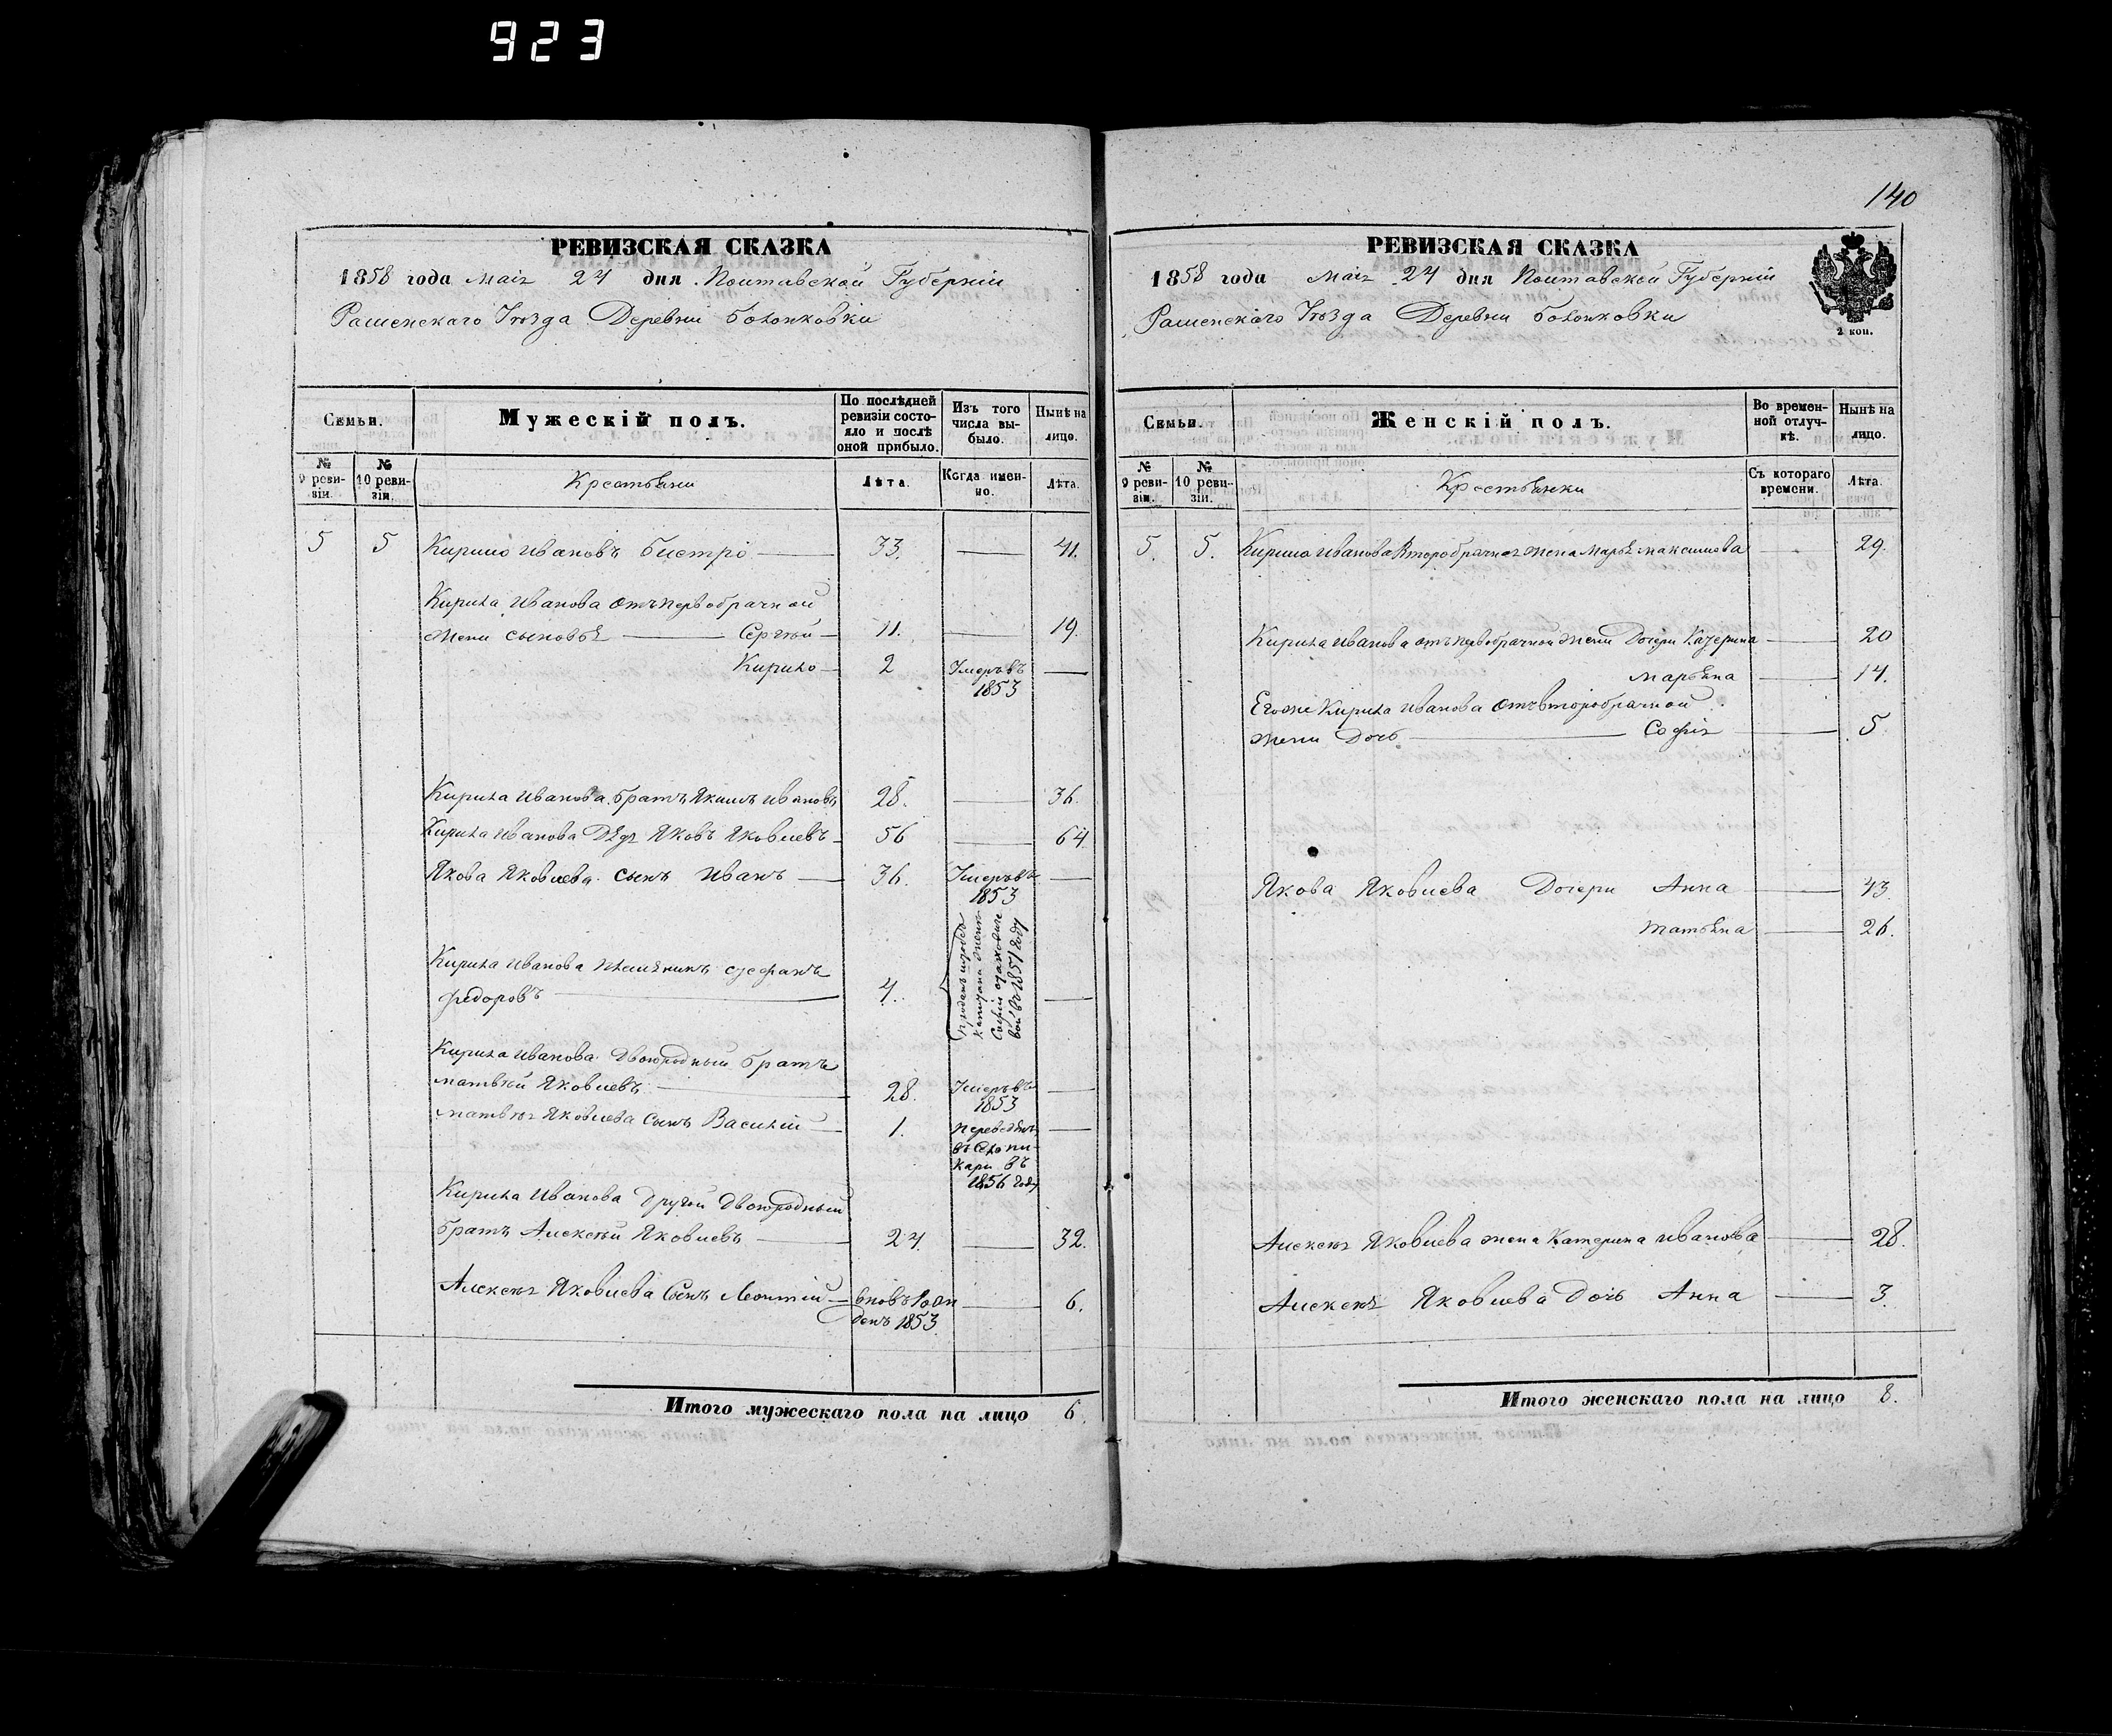 923
140
РЕВИЗСКАЯ СКАЗКА
1858 года маія 24 дня Полтавской Губерніи
Деревни
Семьи.
Мужескій полъ.
По послѣдней ревизіи состо-
яло и послѣ
оной прибыло.
Изъ того
числа вы-
было.
Нынѣ на
лицо.
№
9 реви-
зіи.
№
10 реви-
зіи.
Крестьяни
Лѣта.
Когда имен-
но.
Лѣта.
5 5 Кирило Ивановъ Бистрій 33. 41.
Кирила Иванова отъ первобрачной
жени сыновья Сергѣй 11. 19.
Кирило 2 Умеръ въ
1853
Кирила Иванова братъ Якимъ Ивановъ 28. 36.
Кирила Иванова Дядя Яковъ Яковлевъ 56 64
Якова Яковлева сынъ Иванъ 36. Умеръ въ
1853
Кирила Иванова племяникъ Стефанъ
Федоровъ 4.
Софіи
1851 году
Кирила Иванова двоюродный братъ
Матвѣй Яковлевъ 28. Умеръ въ
1853
Матвѣя Яковлева сынъ Василій 1. переведенъ
въ село пи-
кари въ
1856 году
Кирила Иванова другій двоюродный
братъ Алексѣй Яковлевъ 24. 32.
Алексѣя Яковлева сынъ Леонтій вновь рож
денъ 1853 6.
Итого мужескаго пола на лицо 6.
РЕВИЗСКАЯ СКАЗКА
1858 года маія 24 дня Полтавской Губерніи
Деревни
2 коп.
Семьи.
Женскій полъ.
Во времен-
ной отлуч-
кѣ.
Нынѣ на
лицо.
№
9 реви-
зіи.
№
10 реви-
зіи.
Крестьянки
Съ котораго
времени.
Лѣта.
5. 5. Кирила Иванова второбрачная жена Марья Максимова 29.
Кирила Иванова отъ первобрачной жени Дочери Катерина 20
Марьяна 14.
Егоже Кирила Иванова отъ второбрачной
жени Дочь Софія 5
Якова Яковлева Дочери Анна 43
Татьяна 26.
Алексѣя Яковлева жена Катерина Иванова 28.
Алексѣя Яковлева Дочь Анна 3.
Итого женскаго пола на лицо 8.